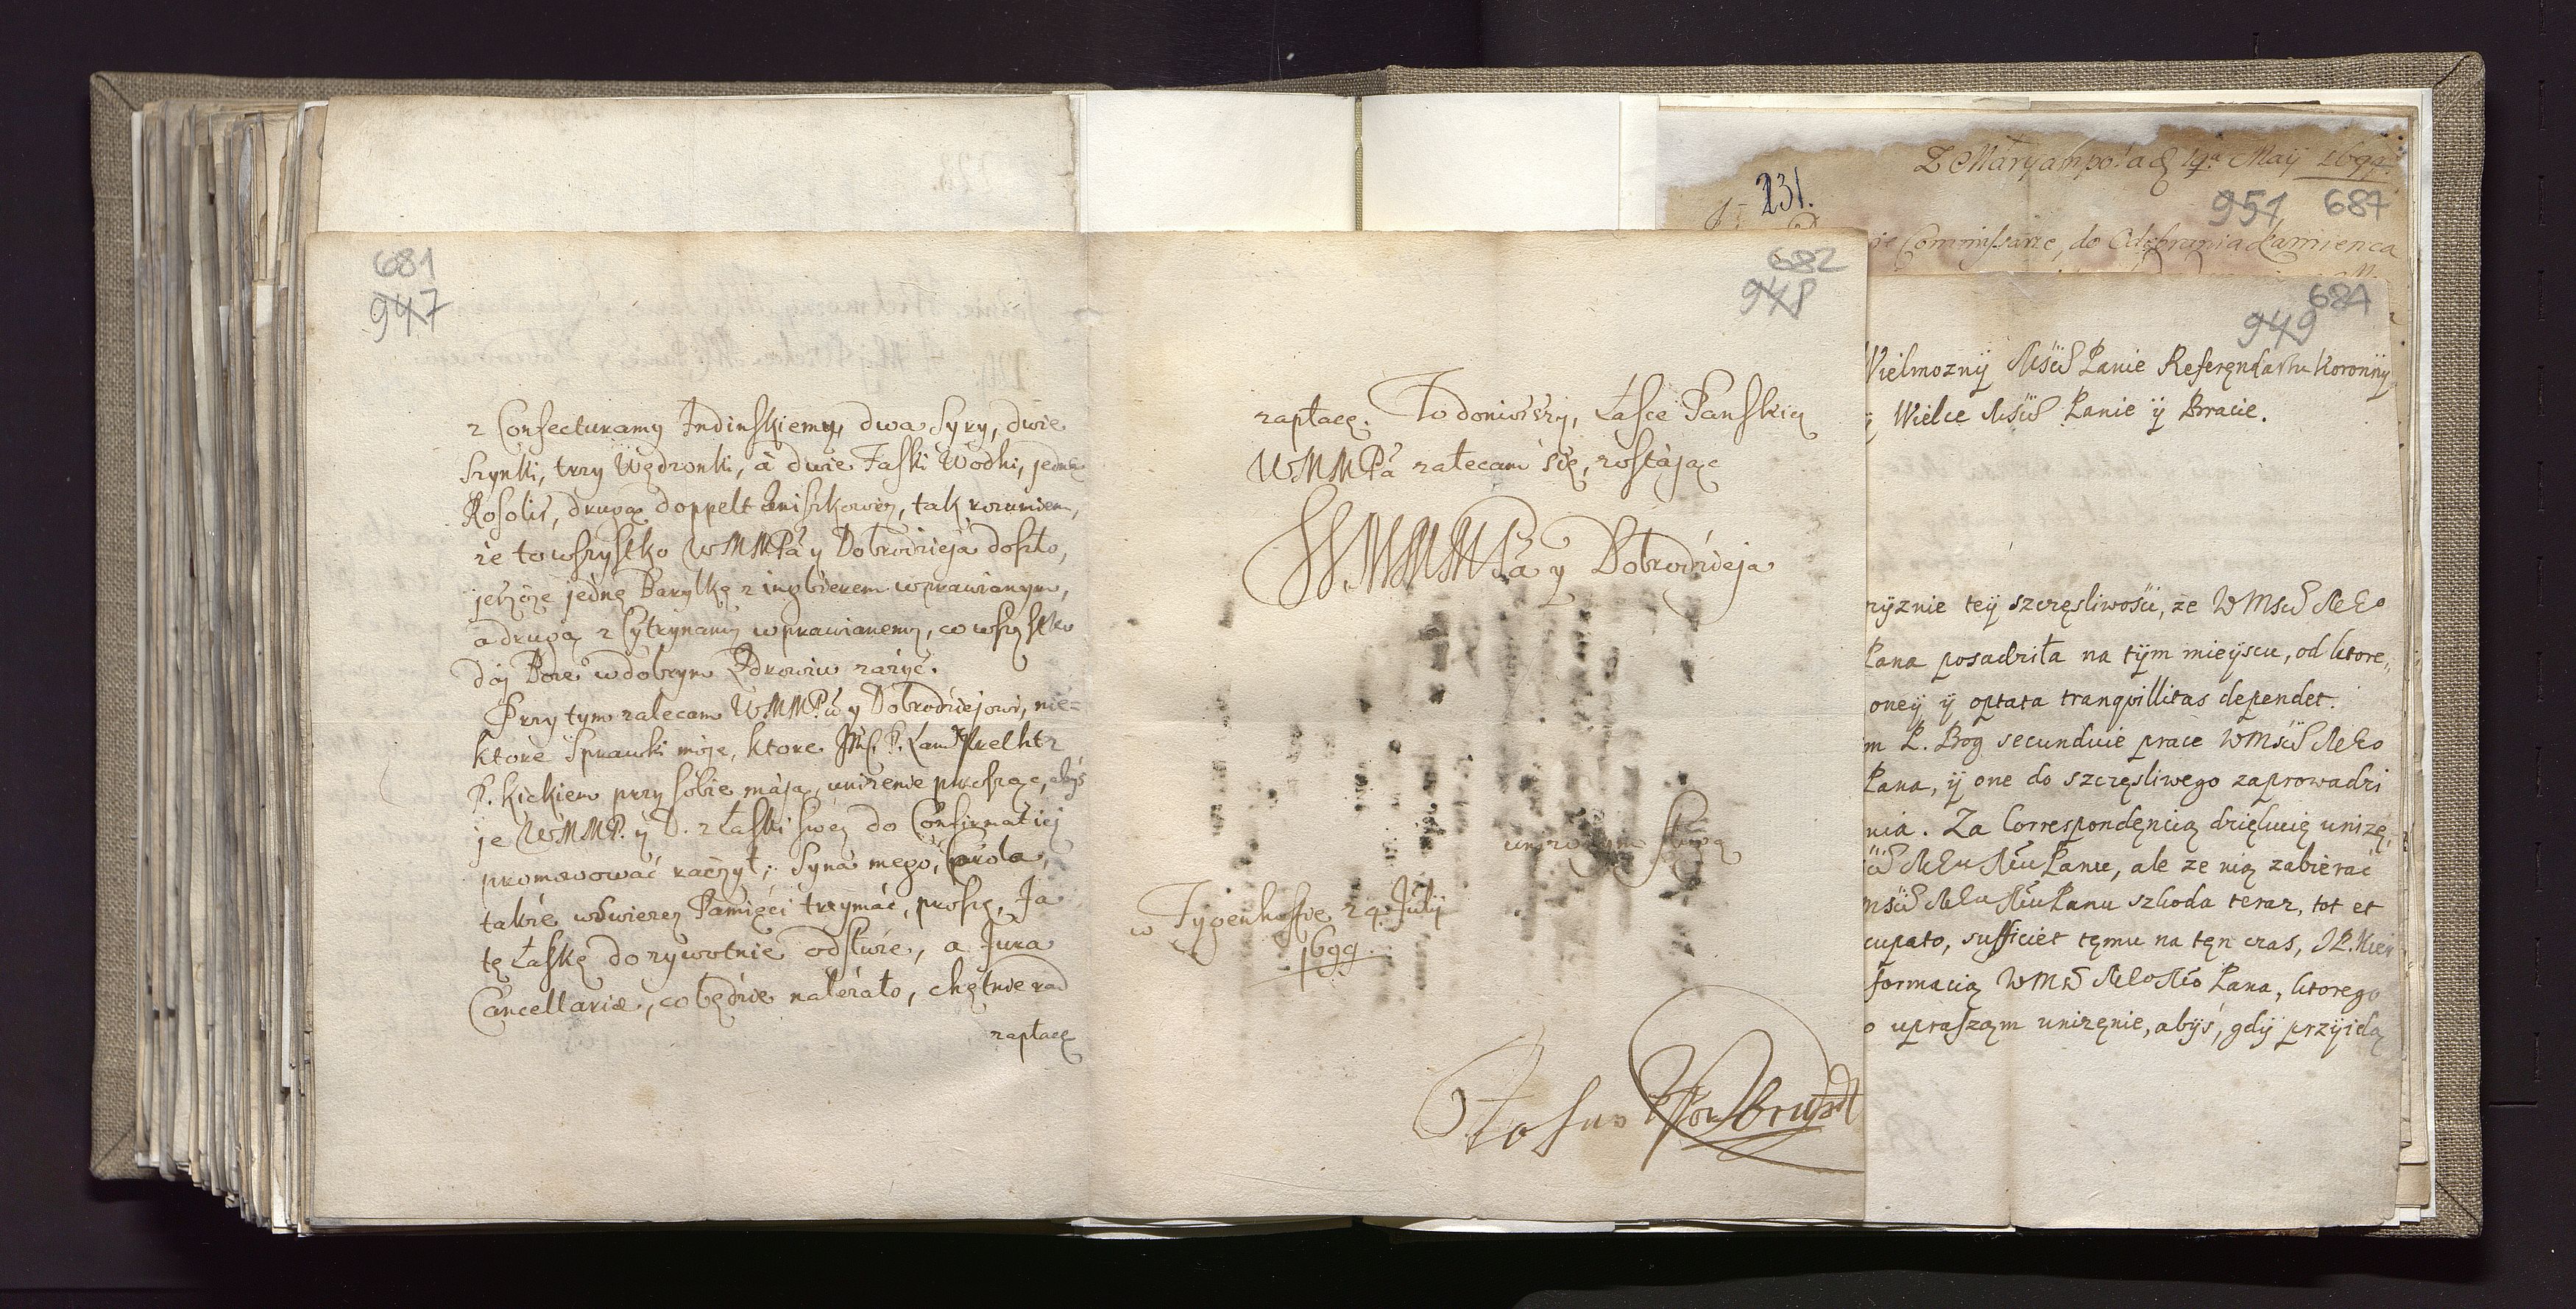 681
947
z Confecturamy Indinskiemy, dwa Syry, dwie
Szynki, trzy Wędzonki, à dwie Faski Wodki, jednę
Rosolis, drugą doppelt Aniszkowey, tak rozumiem,
że to wszystko WMMPa y Dobrodzieja doszło,
jeszcze jednę Baryłkę z ingbierem wprawianym,
a drugą z Cytrynamy wprawianemy, co wszystko
daj Boże w dobrym Zdrowiu zażyć.
Przy tym zalecam WMMPu y Dobrodziejowi, nie=
ktore Sprawki moje, ktore JMć. P. z
P. Kickiem przy sobie mają, uniżenie prosząc, abyś
je WMMP. y D. z Łaski swey do Confirmatiej
promowować raczył; Syna mego, Carola,
także w swierey Pamięci trzymać, proszę, Ja
tę Łaskę dożywotnie odsłużę, a Jura
Cancellariæ, co będzie należało, chętnie rad
zapłacę
682
948
zapłacę. To doniosszy, Łasce Panskiey
WMMPa zalecam się, zostając
WMMMPa y Dobrodzieja
uniżonym sługą
w Tygenhoffie 29. Julij
1699.
231.
Z Maryampola d 19a Maij 1699.
951 687
Commissarze, do Odebrania Kamienca
684
949
Wielmozny Msću Panie Referendarzu Koronny
Wielce Msću Panie y Bracie.
ryznie tey szczęsliwosci, ze WMsću Mego
Pana posadziła na tym mieyscu, od ktore,,
oney y optata tranquillitas dependet.
m P. Bog secunduie prace WMsću Mego
Pana, y one do szczęsliwego zaprowadzi
nia. Za Correspondęncią dzięкuię unizę,
Panu, ale ze nią zabierać
Panu szkoda teraz, tot et
cupato, sufficiet tęmu na tęn czas, JP. Kier
formacią Pana, ktorego
o upraszam unizęnie, abyś, gdy przyidą